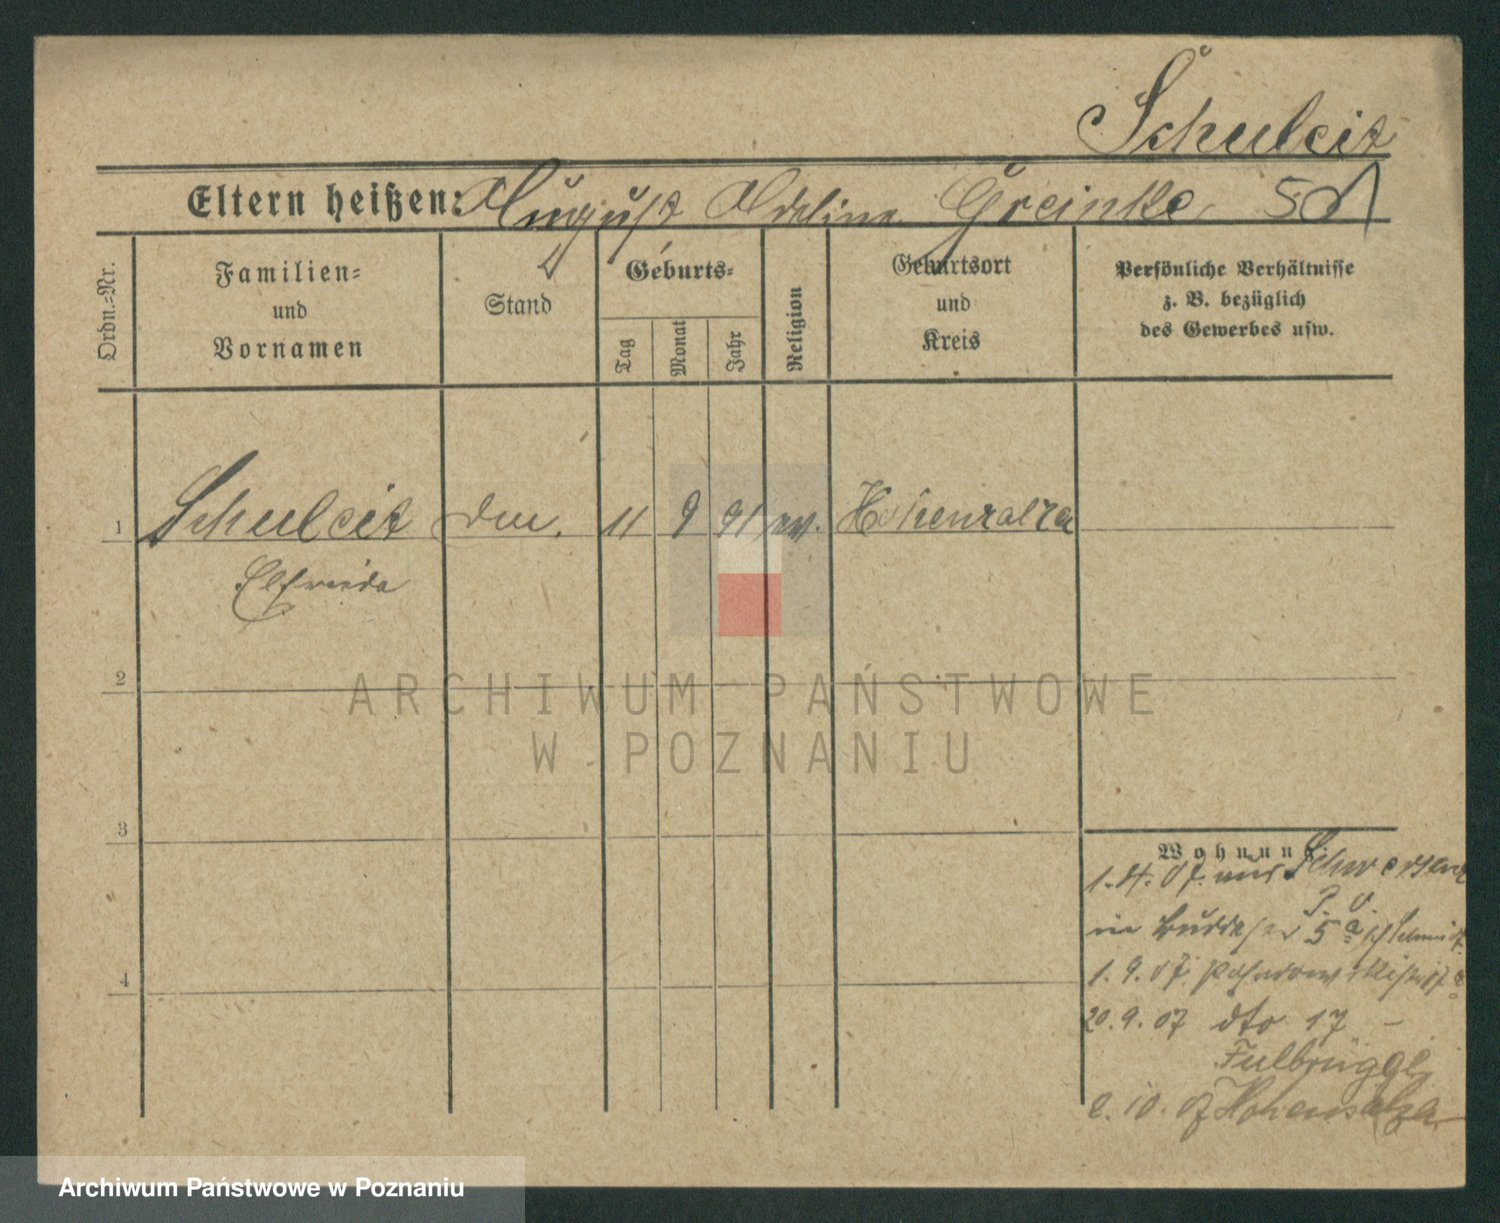 Schuleit
Eltern heißen: August Adeline Greinke, 5
Ordn.-Nr.
Familien-
und
Vornamen
Stand
Geburts-
Tag
Monat
Jahr
Religion
Geburtsort
und
Kreis
Persönliche Verhältnisse
z. B. bezüglich
des Gewerbes usw.
1 Schuleit 11 9 91 ev. Hohensalza
Elfrieda
2
ARCHIWUM PAŃSTWOWE
W POZNANIU
3
Wohnung:
1.4.07. aus Schwersenz
5a
4
1.9.07.
20.9.07 dto 17 –
Fulbrügge
2.10.07 Hohensalza
Archiwum Państwowe w Poznaniu